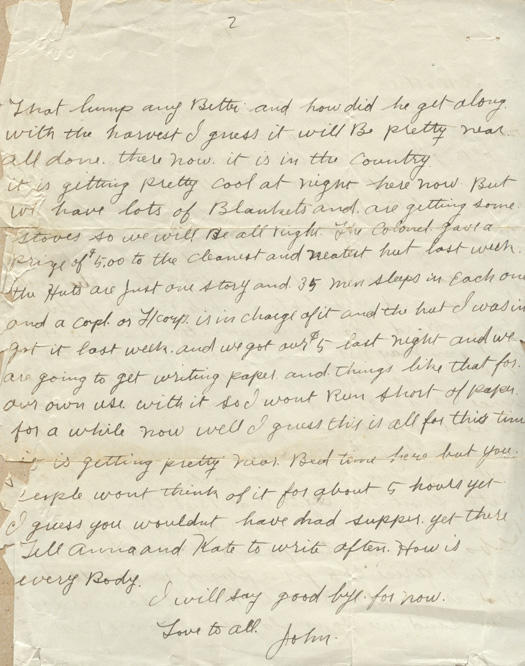 2
That hump any Better and how did he get along
with the harvest I guess it will Be pretty near
all done. there now. it is in the Country
it is getting pretty cool at night here now But
we have lots of Blankets and are getting some
stoves so we will Be all right. The Colonel gave a
Prize of $5.00 to the cleanest and neatest hut last week.
the Huts are Just one story and 35 men sleep in Each one
and a copl. or L/corp. is in charge of it and the hut I was in
got it last week. and we got our $5 last night and we
are going to get writing paper and things like that for
our own use with it so I wont Run short of paper
for a while now well I guess this is all for this time
it is getting pretty near Bed time here but you
People wont think of it for about 5 hours yet
I guess you wouldnt have had supper yet there
Tell Anna and Kate to write often. How is
every Body.
I will say good bye for now.
Love to all.
John.